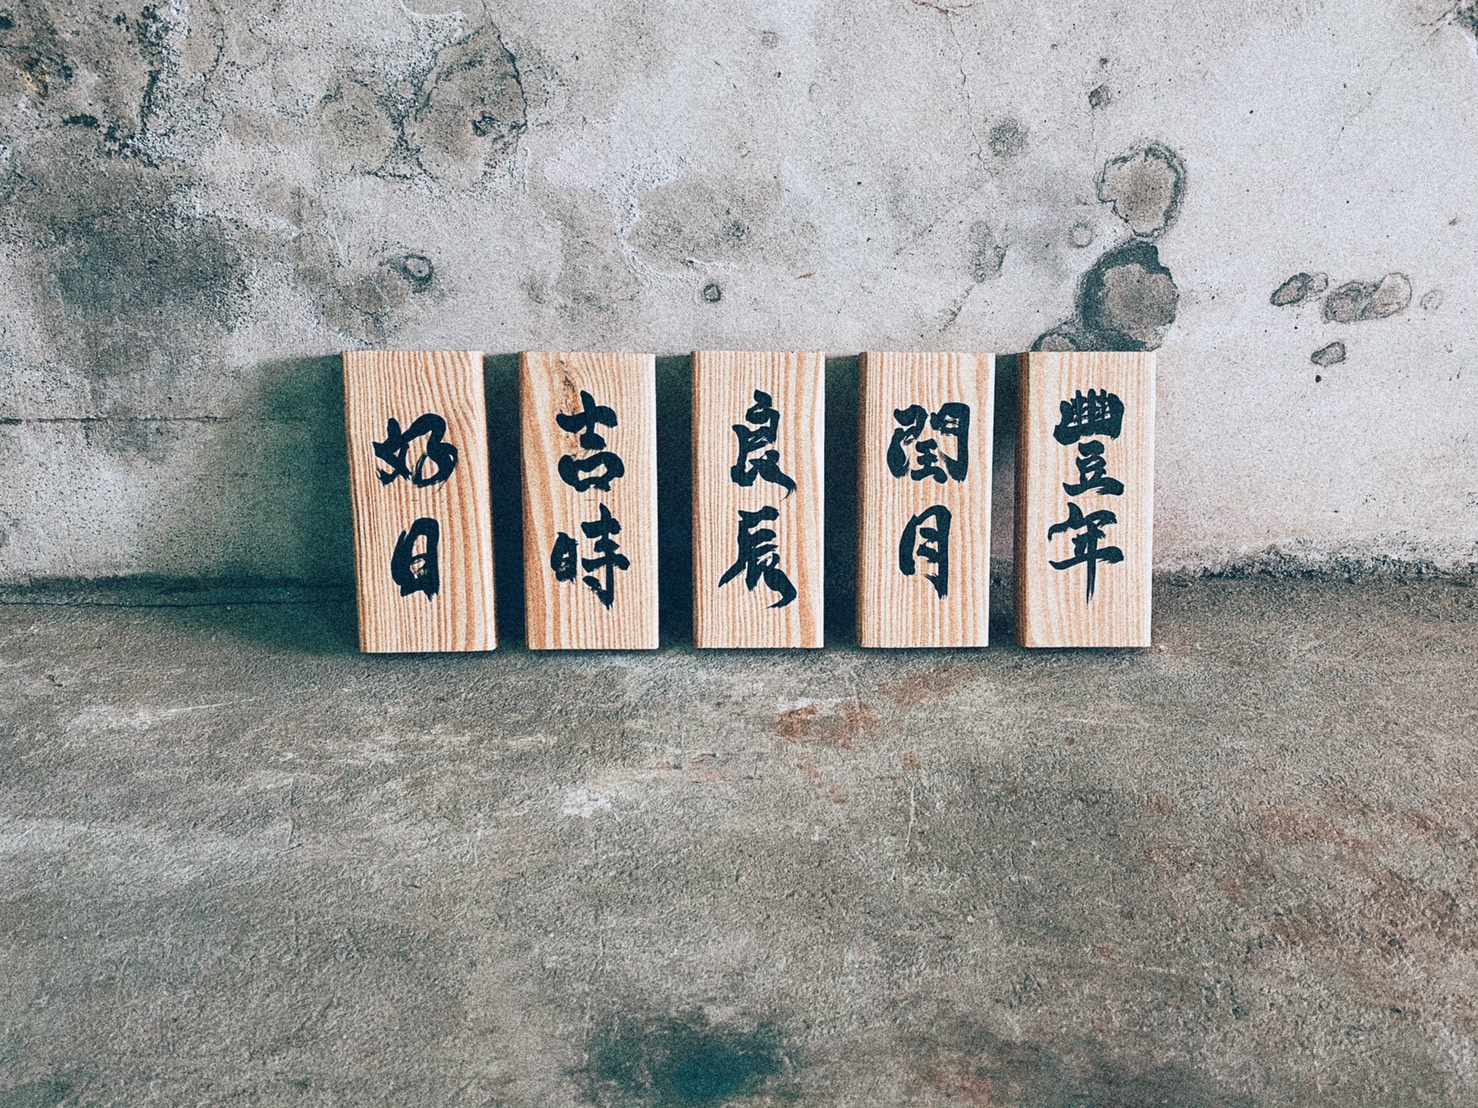 豐年
閏月
良辰
吉時
好日